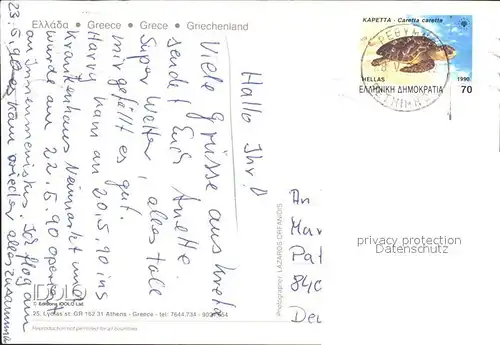 Ελλάδα • Greece • Grèce • Griechenland
ΚΑΡΕΤΤΑ - Caretta caretta
HELLAS 1990
ΕΛΛΗΝΙΚΗ ΔΗΜΟΚΡΑΤΙΑ 70
Hallo Ihr!
Viele Grüsse aus Kreta
sendet Euch Anette
Super Wetter, alles tolle
mir gefällt es gut.
Harry kam am 20.5.90 ins
Krankenhaus Neumarkt und
wurde am 22.5.90 operiert
am Innenmeniskus. Ich flog am
23.5.90 kam wieder alles zusammen
An
Mar
Pat
840
Deu
privacy protection
Datenschutz
Photographer: LAZAROS ORFANOS
IDOLO
© Editions IDOLO Ltd.
25, Lydias st. GR 162 31 Athens - Greece - tel: 7644.734
Reproduction not permitted for all countries